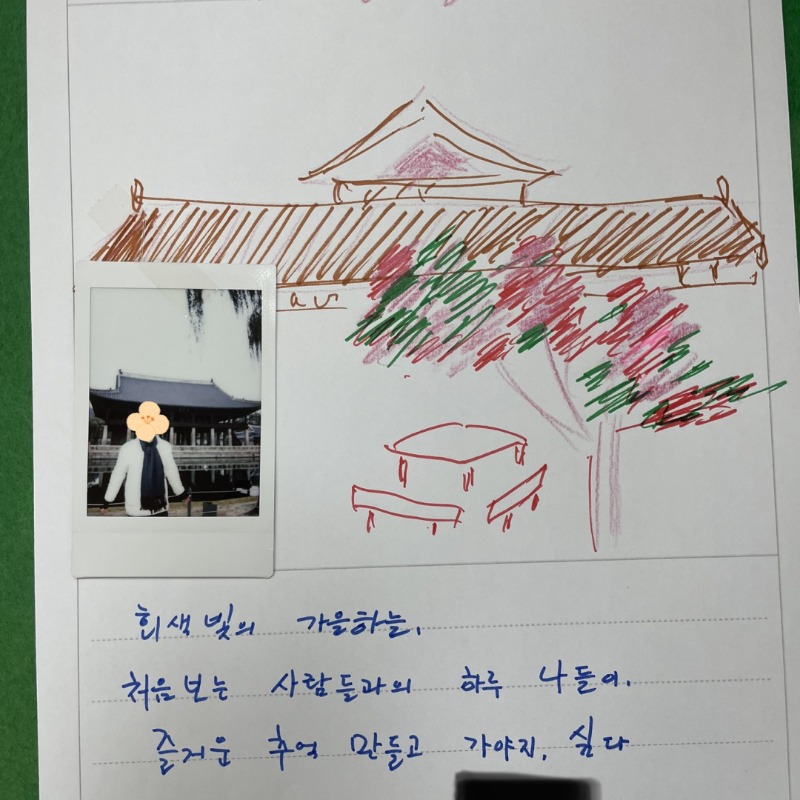 회색빛의 가을하늘.
처음보는 사람들과의 하루 나들이.
즐거운 추억 만들고 가야지. 싶다